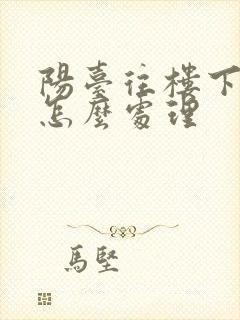 陽臺往樓下
怎麼處理
馬堅